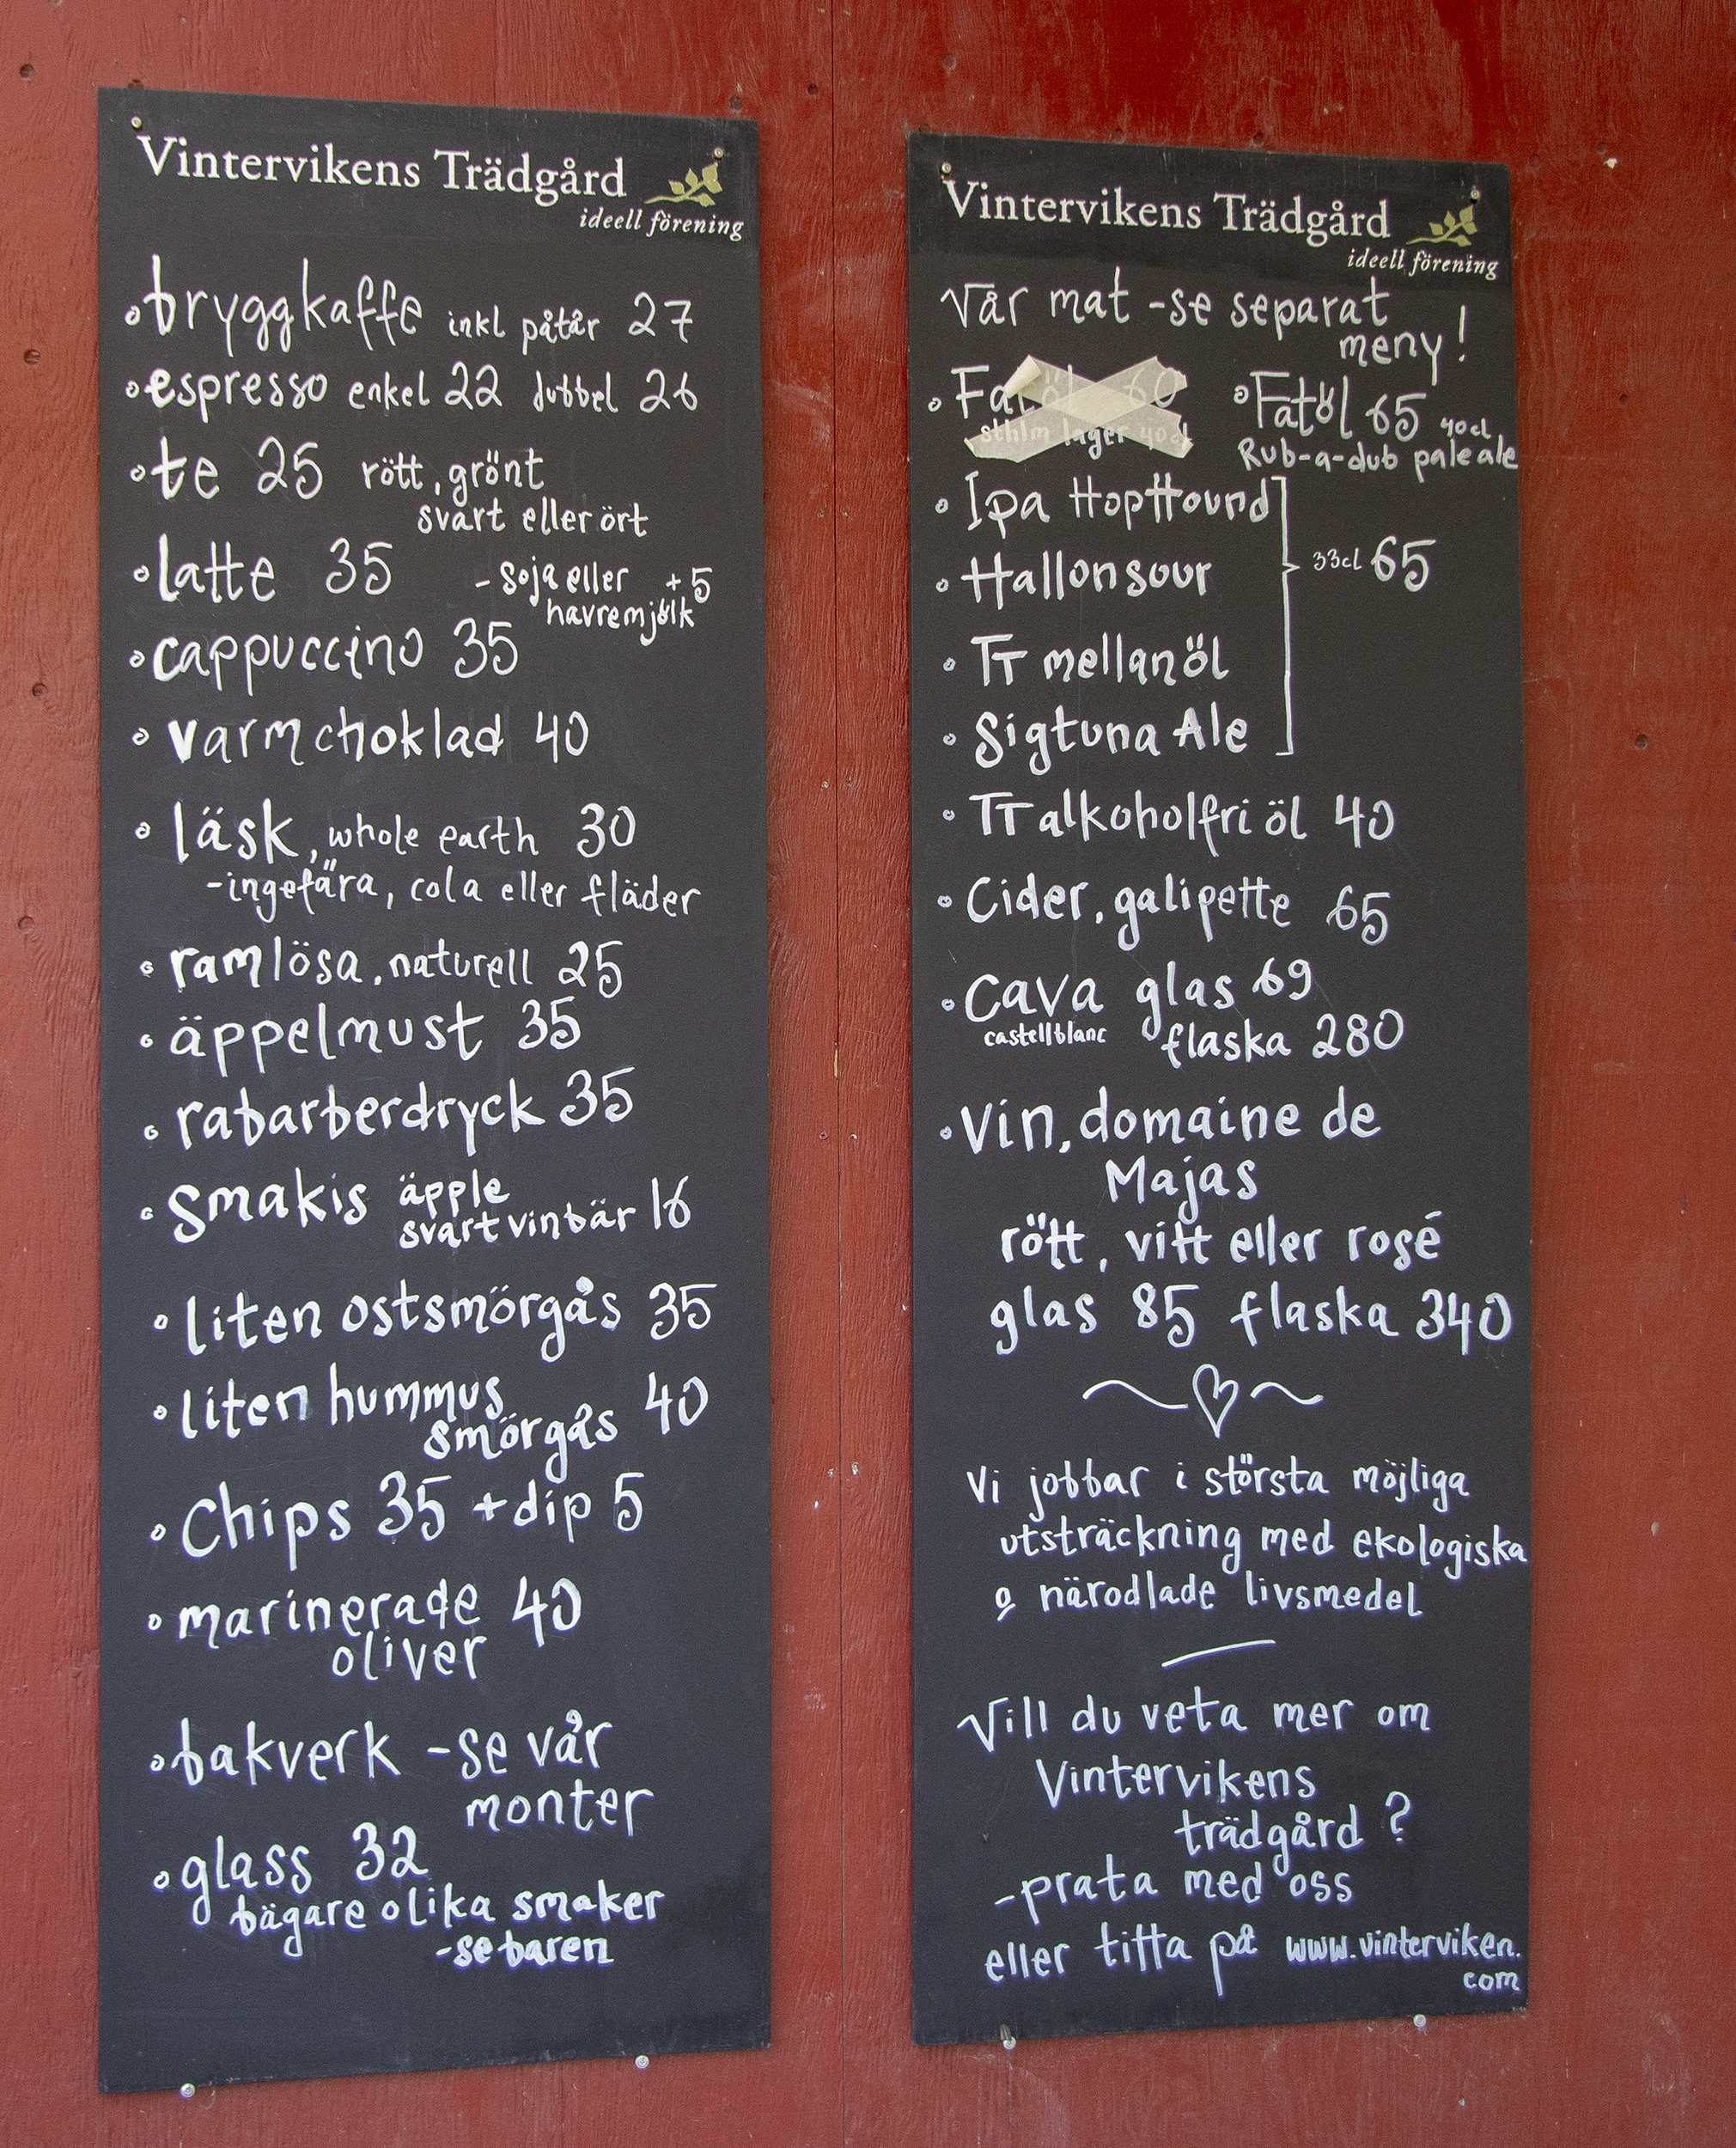 Vintervikens Trädgård
ideell förening
bryggkaffe inkl påtår 27
espresso enkel 22 dubbel 26
te 25 rött, grönt
svart eller ört
latte 35 - soja eller +5
havremjölk
cappuccino 35
varmchoklad 40
läsk, whole earth 30
-ingefära, cola eller fläder
ramlösa, naturell 25
äppelmust 35
rabarberdryck 35
smakis äpple
svartvinbär 16
liten ostsmörgås 35
liten hummus
smörgås 40
Chips 35 + dip 5
marinerade 40
oliver
bakverk - se vår
monter
glass 32
bägare olika smaker
-se baren
Vintervikens Trädgård
ideell förening
Vår mat - se separat
meny!
Fatöl 60
sthlm lager 40cl
Fatöl 65 40cl
Rub-a-dub pale ale
Ipa HopHound
Hallonsour
33cl 65
TT mellanöl
Sigtuna Ale
TT alkoholfri öl 40
Cider, galipette 65
Cava glas 69
castellblanc flaska 280
Vin, domaine de
Majas
rött, vitt eller rosé
glas 85 flaska 340
Vi jobbar i största möjliga
utsträckning med ekologiska
o närodlade livsmedel
Vill du veta mer om
Vintervikens
trädgård ?
-prata med oss
eller titta på www.vinterviken.
com